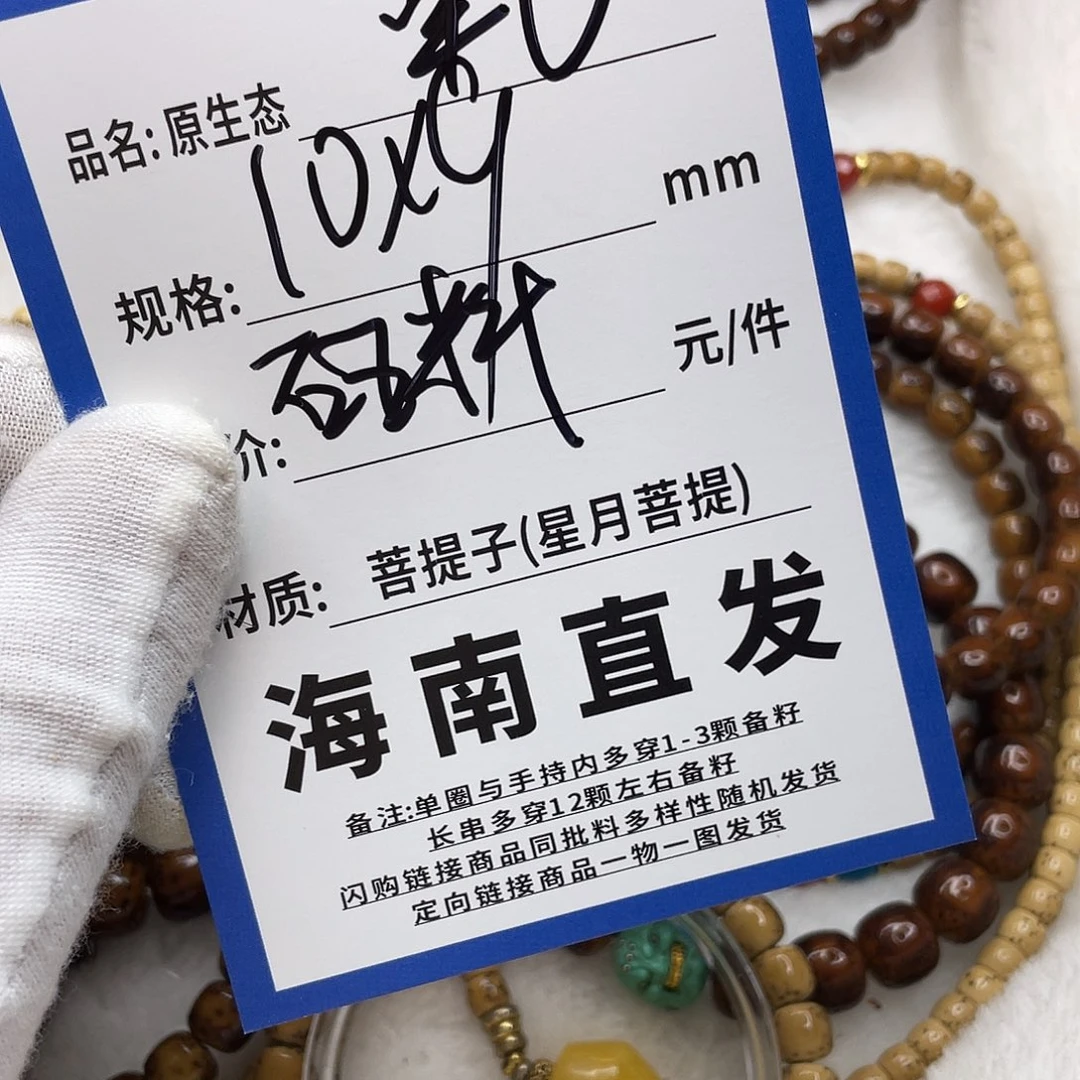 品名: 原生态
规格: 10x9 mm
料 元/件
价:
材质: 菩提子(星月菩提)
海南直发
备注:单圈与手持内多穿1-3颗备籽
长串多穿12颗左右备籽
闪购链接商品同批料多样性随机发货
定向链接商品一物一图发货